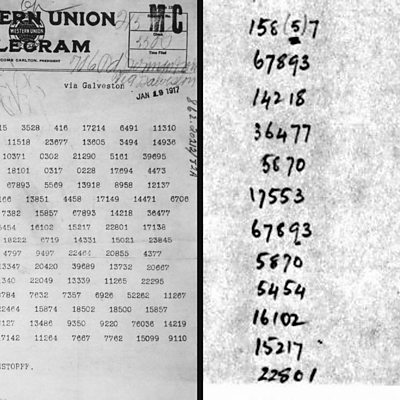 ERN UNION
WESTERN UNION
LEGRAM
COMB CARLTON, PRESIDENT
via Galveston
JAN 19 1917
15 3528 416 17214 6491 11310
11518 23677 13605 3494 14936
10371 0302 21290 5161 39695
18101 0317 0228 17694 4473
67893 5569 13918 8958 12137
166 13851 4458 17149 14471 6706
7382 15857 67893 14218 36477
5454 16102 15217 22801 17138
18222 6719 14331 15021 23845
4797 9497 22464 20855 4377
13347 20420 39689 13732 20667
1340 22049 13339 11265 22295
8784 7632 7357 6926 52262 11267
22464 15874 18502 18500 15857
7127 13486 9350 9220 76036 14219
17142 11264 7667 7762 15099 9110
NSTORFF.
158(5)7
67893
14218
36477
5870
17553
67893
5870
5454
16102
15217
22801